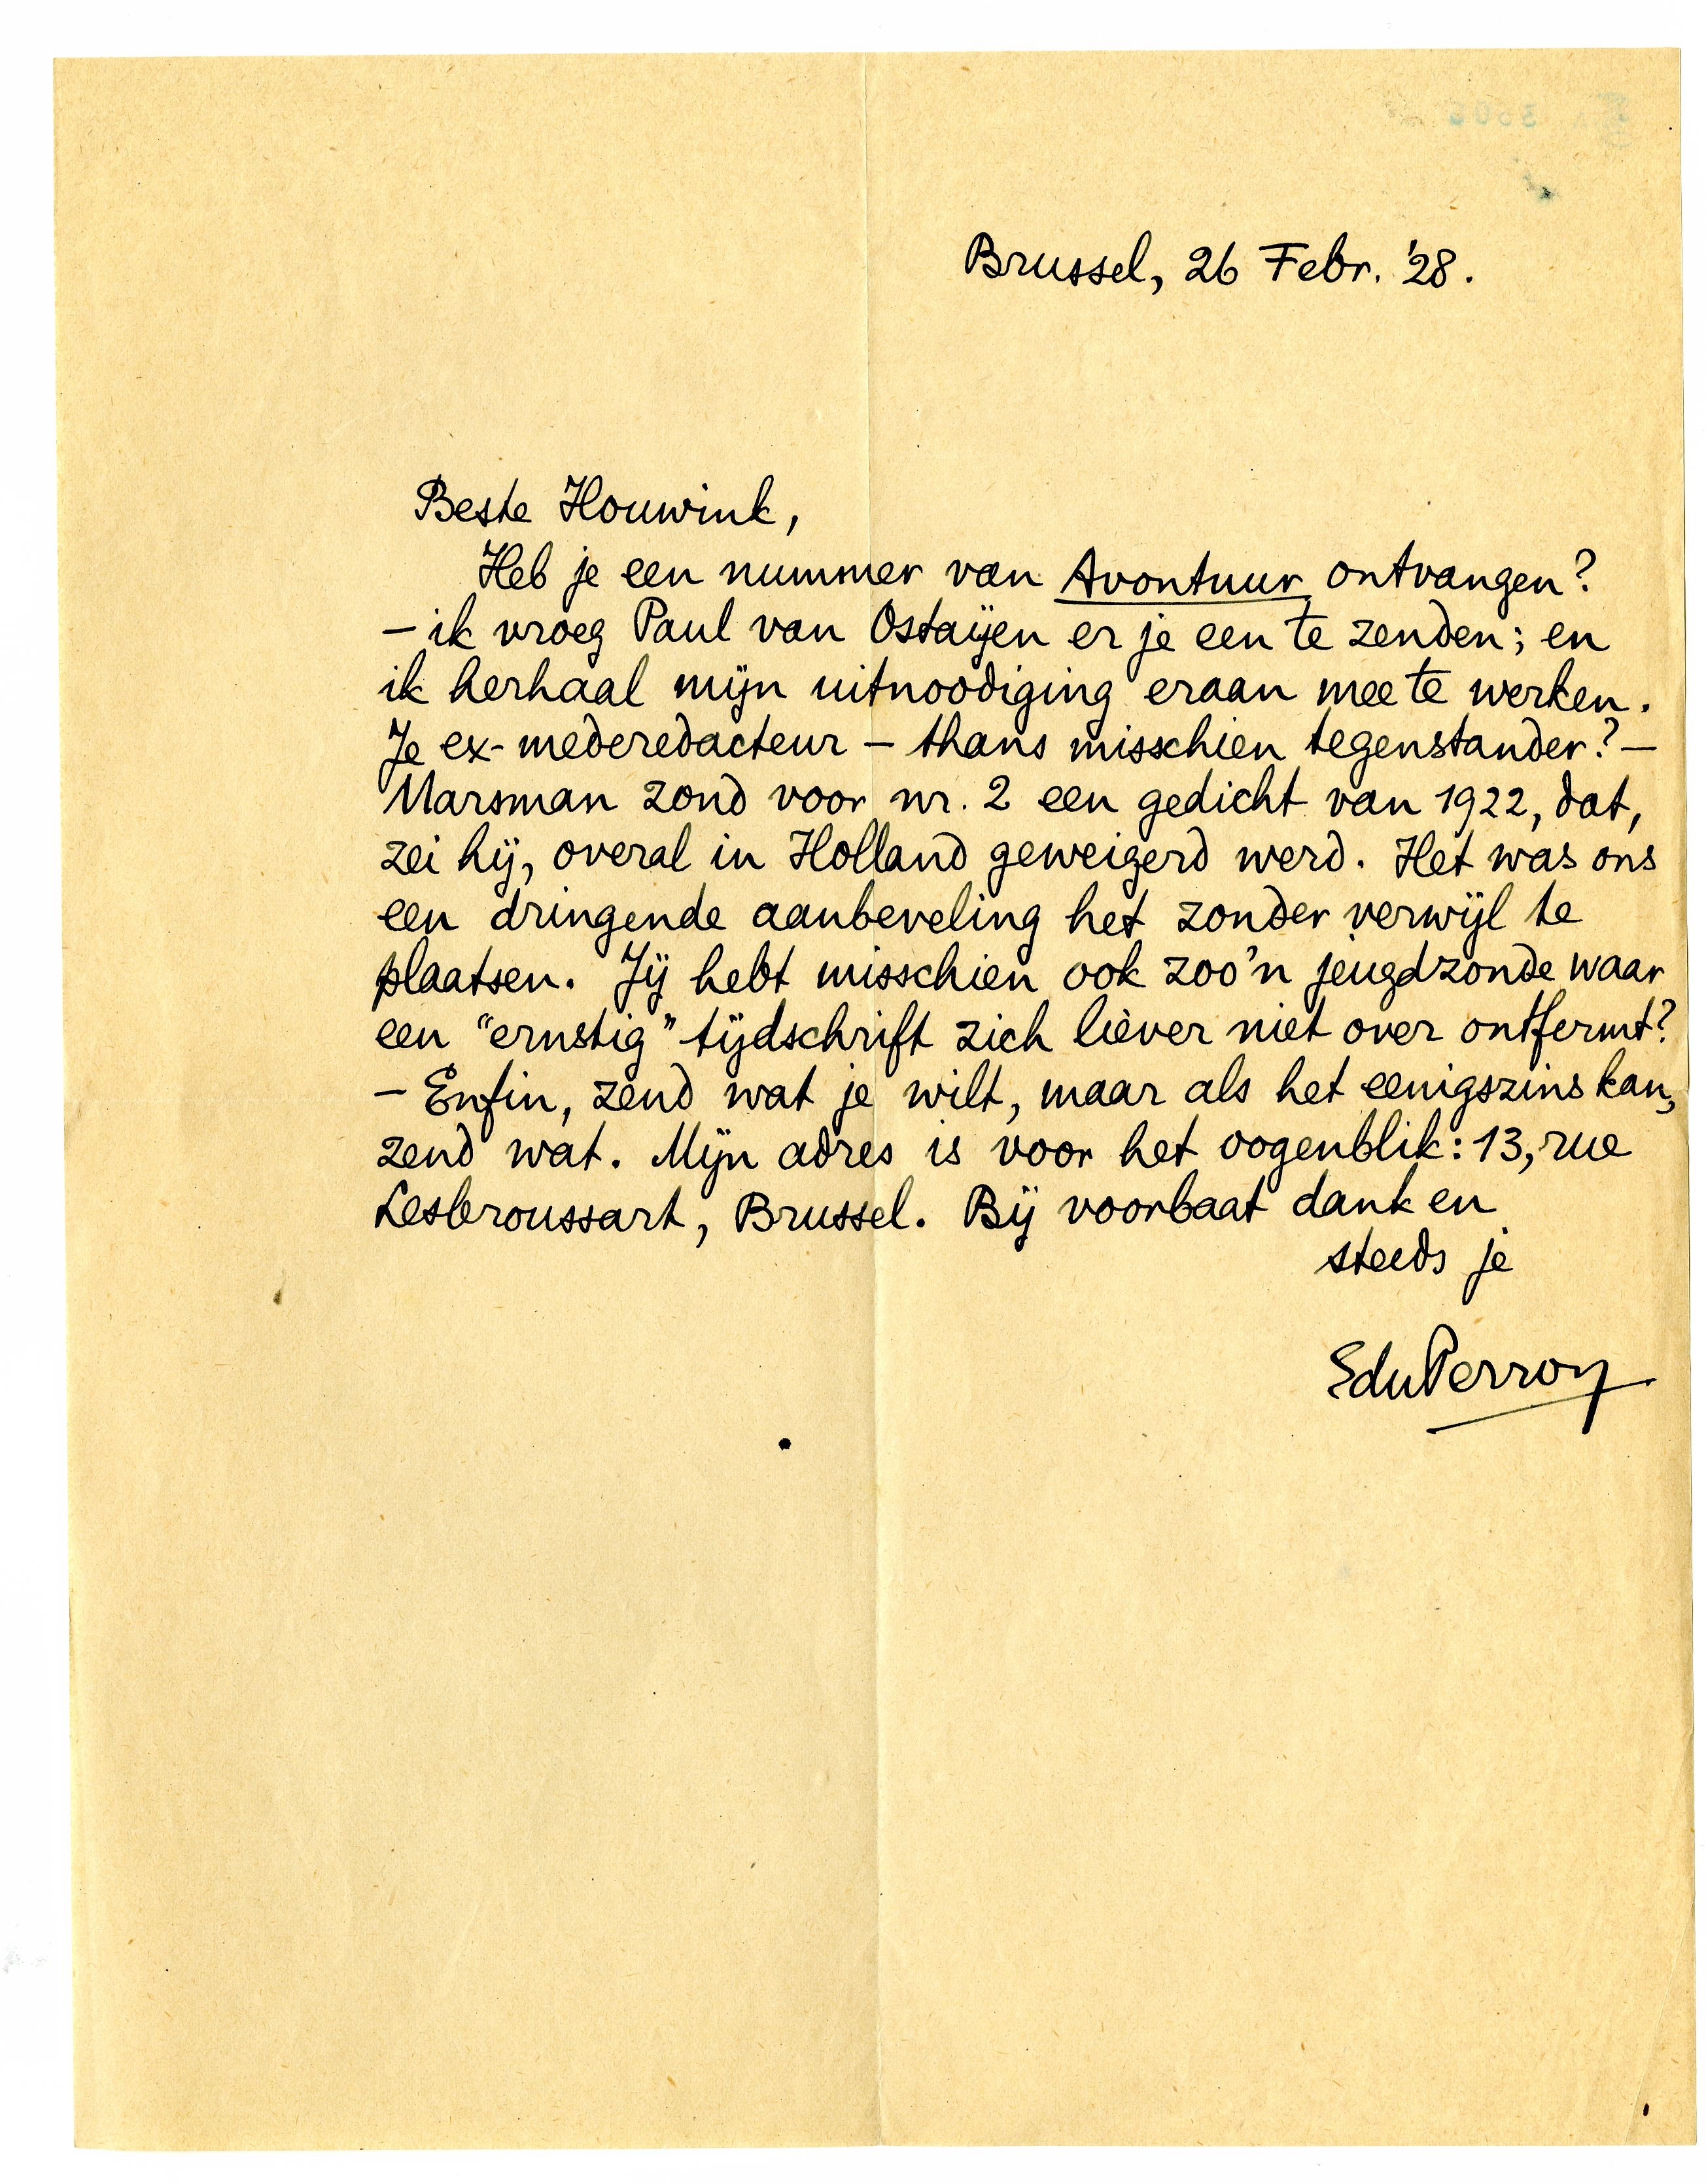 Brussel, 26 Febr. '28.
Beste Houwink,
Heb je een nummer van Avontuur ontvangen?
– ik vroeg Paul van Ostaijen er je een te zenden; en
ik herhaal mijn uitnoodiging eraan mee te werken.
Je ex-mederedacteur – thans misschien tegenstander? –
Marsman zond voor nr. 2 een gedicht van 1922, dat,
zei hij, overal in Holland geweigerd werd. Het was ons
een dringende aanbeveling het zonder verwijl te
plaatsen. Jij hebt misschien ook zoo'n jeugdzonde waar
een "ernstig" tijdschrift zich liever niet over ontfermt?
– Enfin, zend wat je wilt, maar als het eenigszins kan,
zend wat. Mijn adres is voor het oogenblik: 13, rue
Lesbroussart, Brussel. Bij voorbaat dank en
steeds je
EduPerron